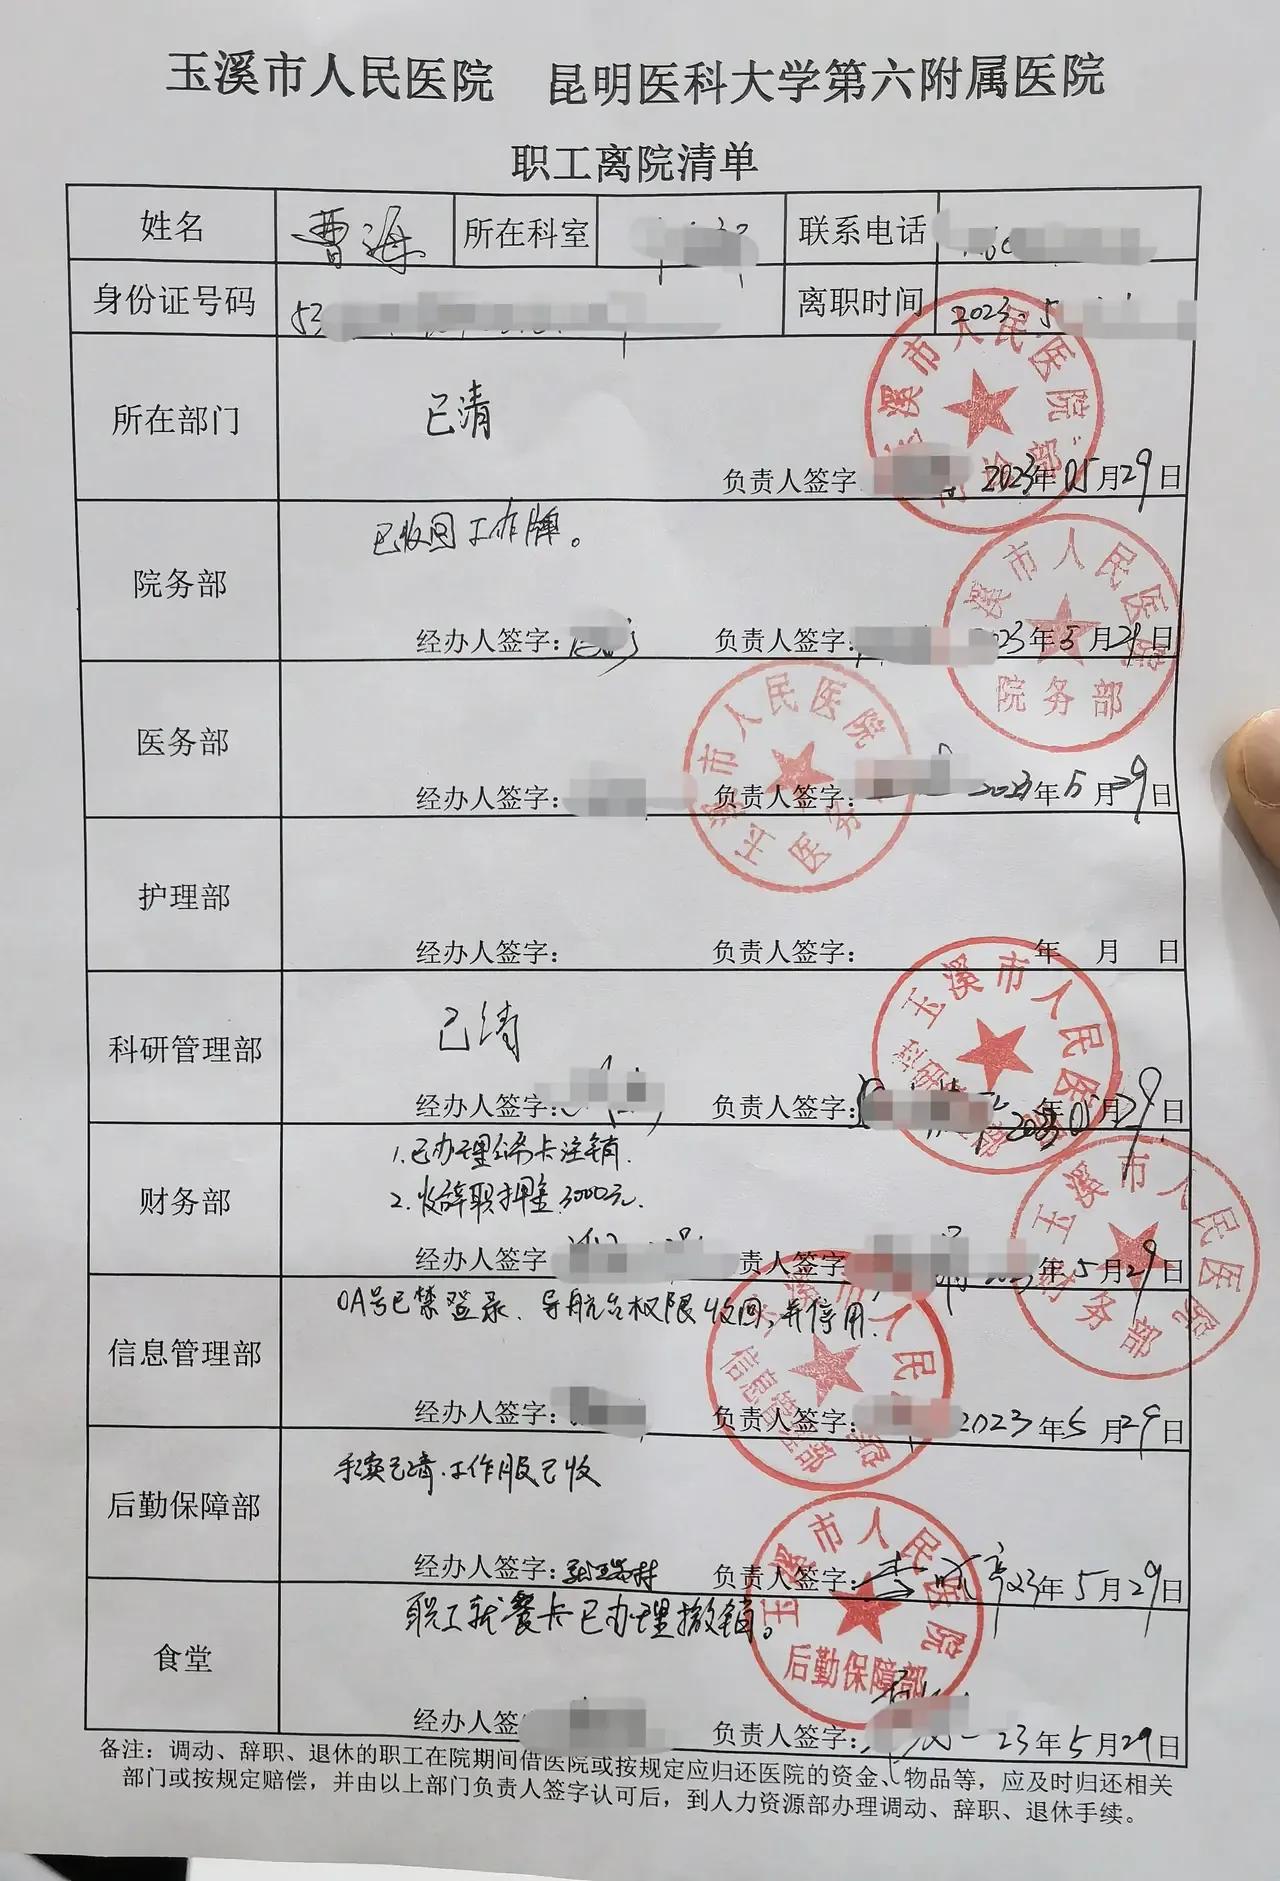 玉溪市人民医院 昆明医科大学第六附属医院
职工离院清单
姓名 曹海 所在科室 联系电话
身份证号码 53 离职时间 2023.5
所在部门 已清
负责人签字 2023年05月29日
院务部 已收回工作牌。
经办人签字: 负责人签字: 2023年5月29日
玉溪市人民医院
院务部
医务部
经办人签字: 负责人签字: 2023年5月29日
玉溪市人民医院
医务
护理部
经办人签字: 负责人签字: 年 月 日
科研管理部 已清
经办人签字: 负责人签字: 2023年05月29日
玉溪市人民医院
财务部 1.已办理绑卡注销.
2.收辞职押金3000元.
经办人签字 责人签字 2023年5月29日
玉溪市人民医院
财务部
信息管理部 OA号已禁登录、导航台权限收回,并停用.
经办人签字: 负责人签字: 2023年5月29日
信息管理部
后勤保障部 手续已清.工作服已收
经办人签字: 负责人签字: 23年5月29日
玉溪市人民医院
后勤保障部
食堂 职工就餐卡已办理撤销。
经办人签 负责人签字: 23年5月29日
备注:调动、辞职、退休的职工在院期间借医院或按规定应归还医院的资金、物品等,应及时归还相关
部门或按规定赔偿,并由以上部门负责人签字认可后,到人力资源部办理调动、辞职、退休手续。